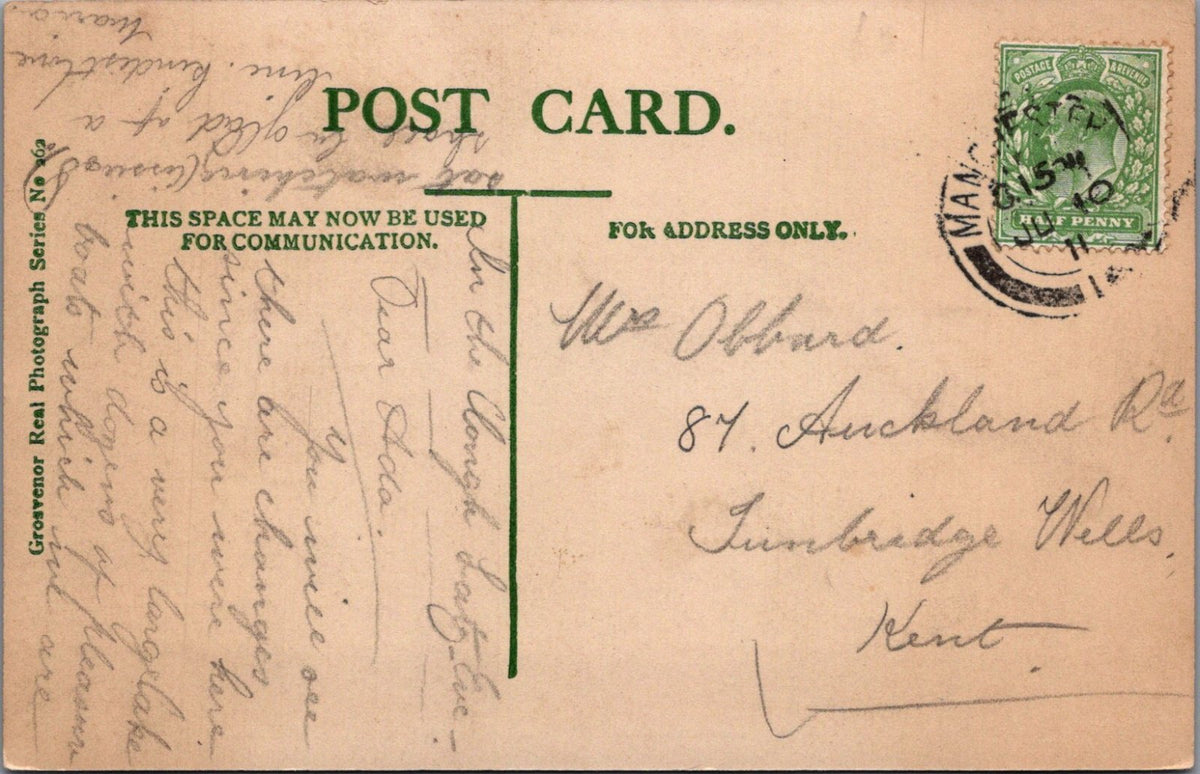 POST CARD.
THIS SPACE MAY NOW BE USED
FOR COMMUNICATION.
FOR ADDRESS ONLY.
Grosvenor Real Photograph Series No
POSTAGE & REVENUE
HALF PENNY
MANCHESTER
JU 10
11
Mrs Obbard.
87. Auckland Rd.
Tunbridge Wells,
Kent.
In the Clough Sat Eve-
Dear Ada.
You will see
there are changes
since you were here
this is a very large lake
with dozens of pleasure
boats which we are
sat watching
shall be glad of a
line. Kindest love
Maria.